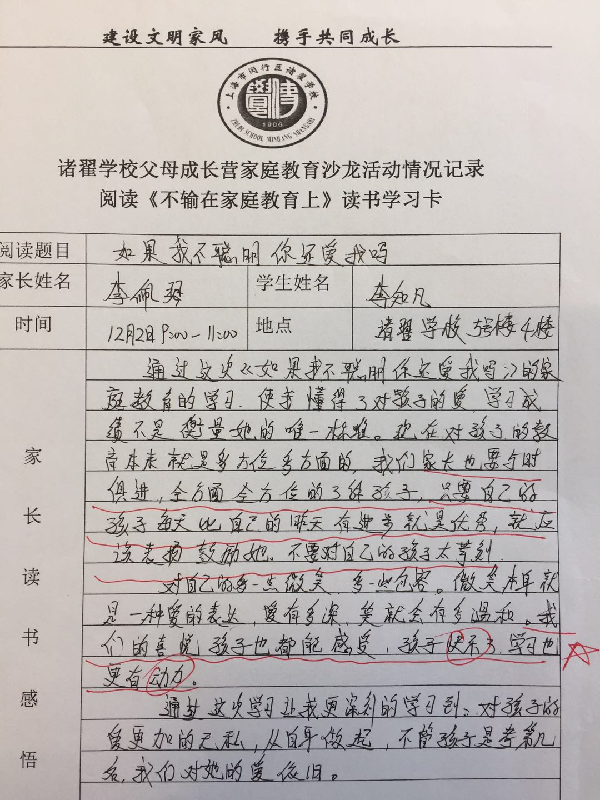 建设文明家风 携手共同成长
上海市闵行区诸翟学校
1906
诸翟学校父母成长营家庭教育沙龙活动情况记录
阅读《不输在家庭教育上》读书学习卡
阅读题目 如果我不聪明你还爱我吗
家长姓名 李佩琴 学生姓名 李知凡
时间 12月2日9:00-11:00 地点 诸翟学校 5号楼4楼
家长读书感悟
通过这次《如果我不聪明你还爱我吗》的家
庭教育的学习.使我懂得了对孩子的爱,学习成
绩不是衡量她的唯一标准。现在对孩子的教
育本来就是多方位多方面的,我们家长也要与时
俱进,全方面全方位的了解孩子,只要自己的
孩子每天比自己的昨天有进步就是优秀,就应
该表扬鼓励她.不要对自己的孩子太苛刻.
对自己的多一点微笑 多一些包容。微笑本身就
是一种爱的表达,爱有多深,笑就会有多温和。我
们的喜悦孩子也都能感受,孩子快乐了,学习也
更有动力。
通过这次学习让我更深刻的学习到:对孩子的
爱更加的无私,从自身做起,不管孩子是考第几
名,我们对她的爱依旧。